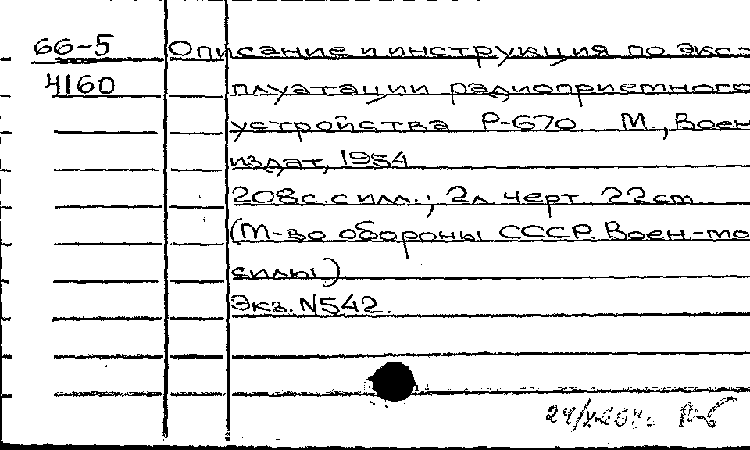 66-5 Описание и инструкция по экс-
4160 плуатации радиоприемного
устройства Р-670 М., Воен
издат, 1954
208с. с илл.; 2л. черт. 22см
(М-во обороны СССР. Воен-мо
силы)
Экз. N542.